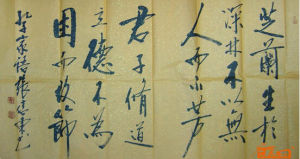 芝蘭生於
深林不以無
人而不芳
君子脩道
立德不為
困而改節
孔家語張